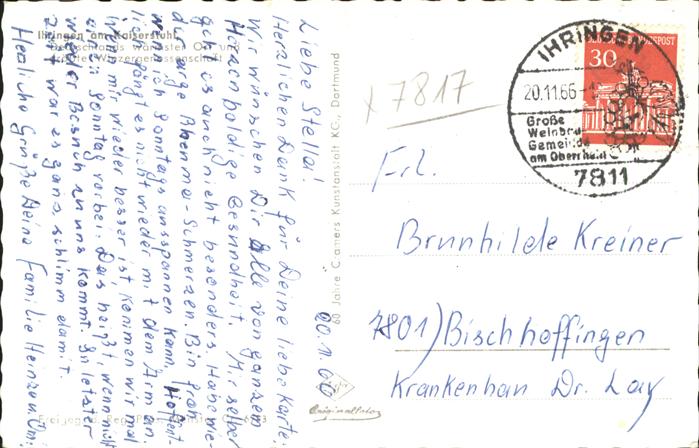 Ihringen am Kaiserstuhl
Deutschlands wärmster Ort und
größte Winzergenossenschaft
Liebe Stella!
Herzlichen Dank für Deine liebe Karte.
Wir wünschen Dir Alle von ganzem
Herzen baldige Gesundheit. Mir selber
geht es auch nicht besonders. Habe we-
Rheuma-Schmerzen. Bin froh
Sonntags ausspannen kann. Hoffent-
lich fängt es nicht wieder mit dem Arm an.
Wenn mir wieder besser ist, kommen wir mal
Sonntag vorbei. Das heißt, wenn nicht
wieder Besuch zu uns kommt. In letzter
Zeit war es ganz schlimm damit.
Herzliche Grüße Deine Familie Heinzen
20.11.66
60 Jahre Cramers Kunstanstalt KG., Dortmund
Originalfoto
Freigeg. d. Reg.
x 7817
IHRINGEN
20.11.66
Große
Weinbau
Gemeinde
am Oberrhein
7811
DEUTSCHE BUNDESPOST
30
Frl.
Brunhilde Kreiner
7801) Bischhoffingen
Krankenhau Dr. Lay